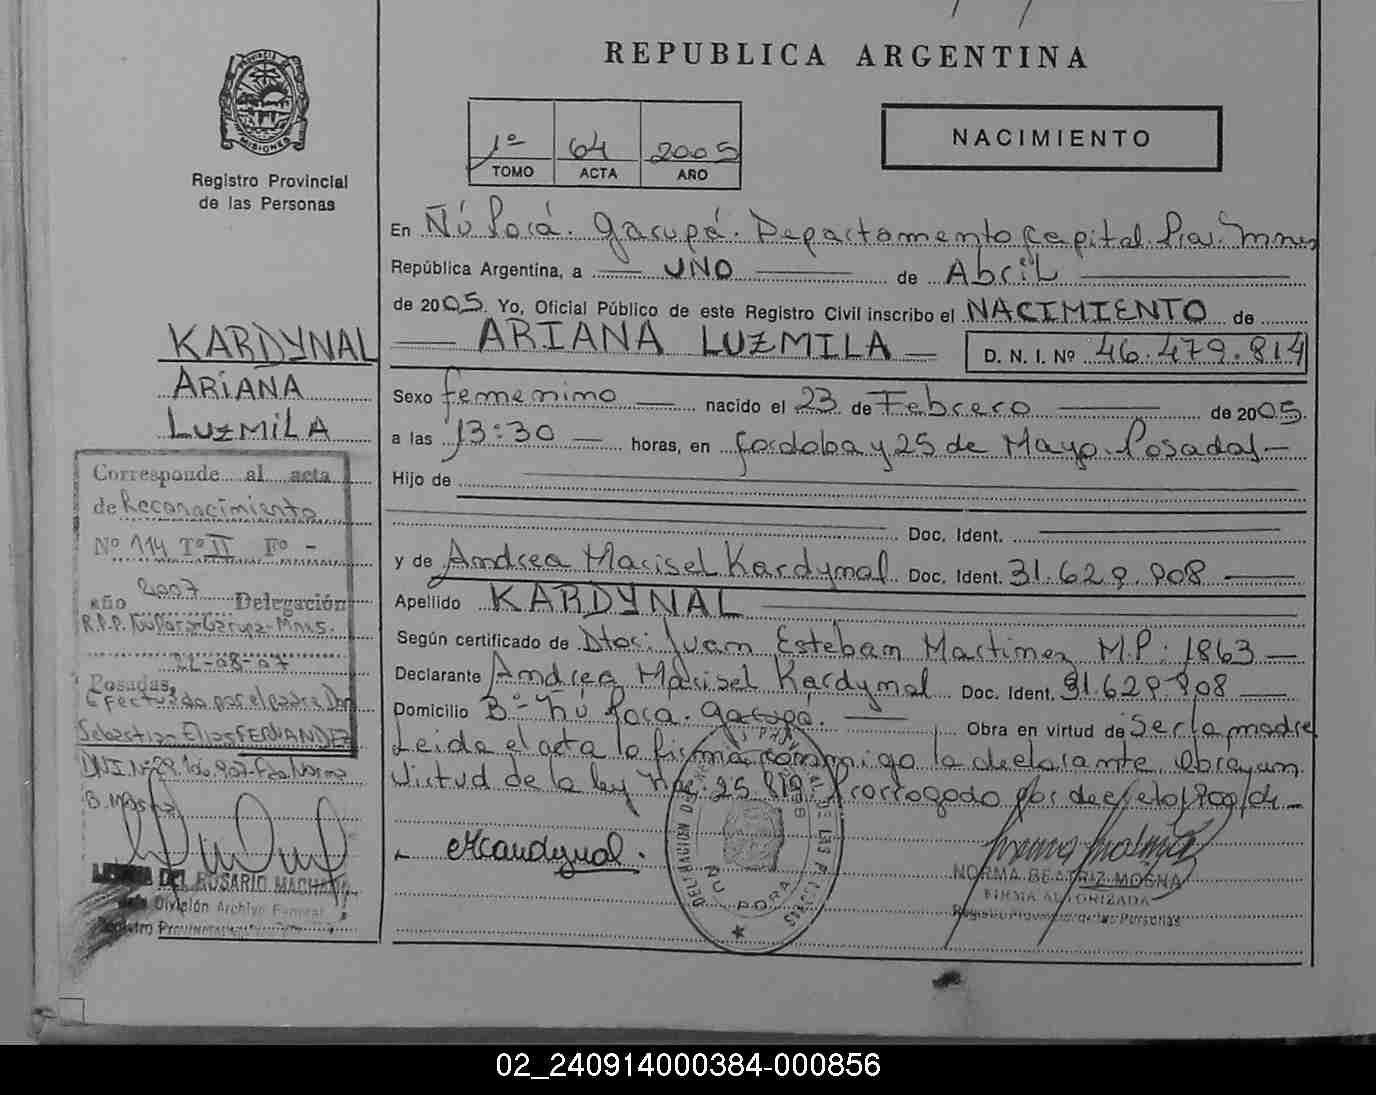 REPUBLICA ARGENTINA
PROVINCIA DE MISIONES
Registro Provincial
de las Personas
1º 64 2005
TOMO ACTA AÑO
NACIMIENTO
En Ñú Porá. Garupá. Departamento Capital Pia. Mnes
República Argentina, a UNO de Abril
de 2005. Yo, Oficial Público de este Registro Civil inscribo el NACIMIENTO de
ARIANA LUZMILA D. N. I. Nº 46.479.814
Sexo femenino nacido el 23 de Febrero de 2005.
a las 13:30 horas, en Cordoba y 25 de Mayo. Posadas
Hijo de
Doc. Ident.
y de Andrea Marisel Kardynal Doc. Ident. 31.629.908
Apellido KARDYNAL
Según certificado de Juan Esteban Martinez M.P. 1863
Declarante Andrea Marisel Kardynal Doc. Ident. 31.629.908
Domicilio Bº Ñú Pora. Garupá. Obra en virtud de ser la madre
Leida el acta la firma conmigo la declarante
virtud de la ley Nro. 25.819 prorrogado por
KARDYNAL
ARIANA
LUZMILA
Corresponde al acta
de Reconocimiento
Nº 114 Tº II Fº -
año 2007 Delegación
R.P.P. Ñu Pora-Garupa-Mnes.
22-08-07
Posadas,
Efectuado por el padre Don
Sebastian Elias FERNANDEZ
DNI Nº 29.
DEL ROSARIO MACHADO
División Archivo General
Registro Provincial
ÑU PORA
NORMA BEATRIZ MOGNA
FIRMA AUTORIZADA
Registro Provincial de las Personas
02_240914000384-000856